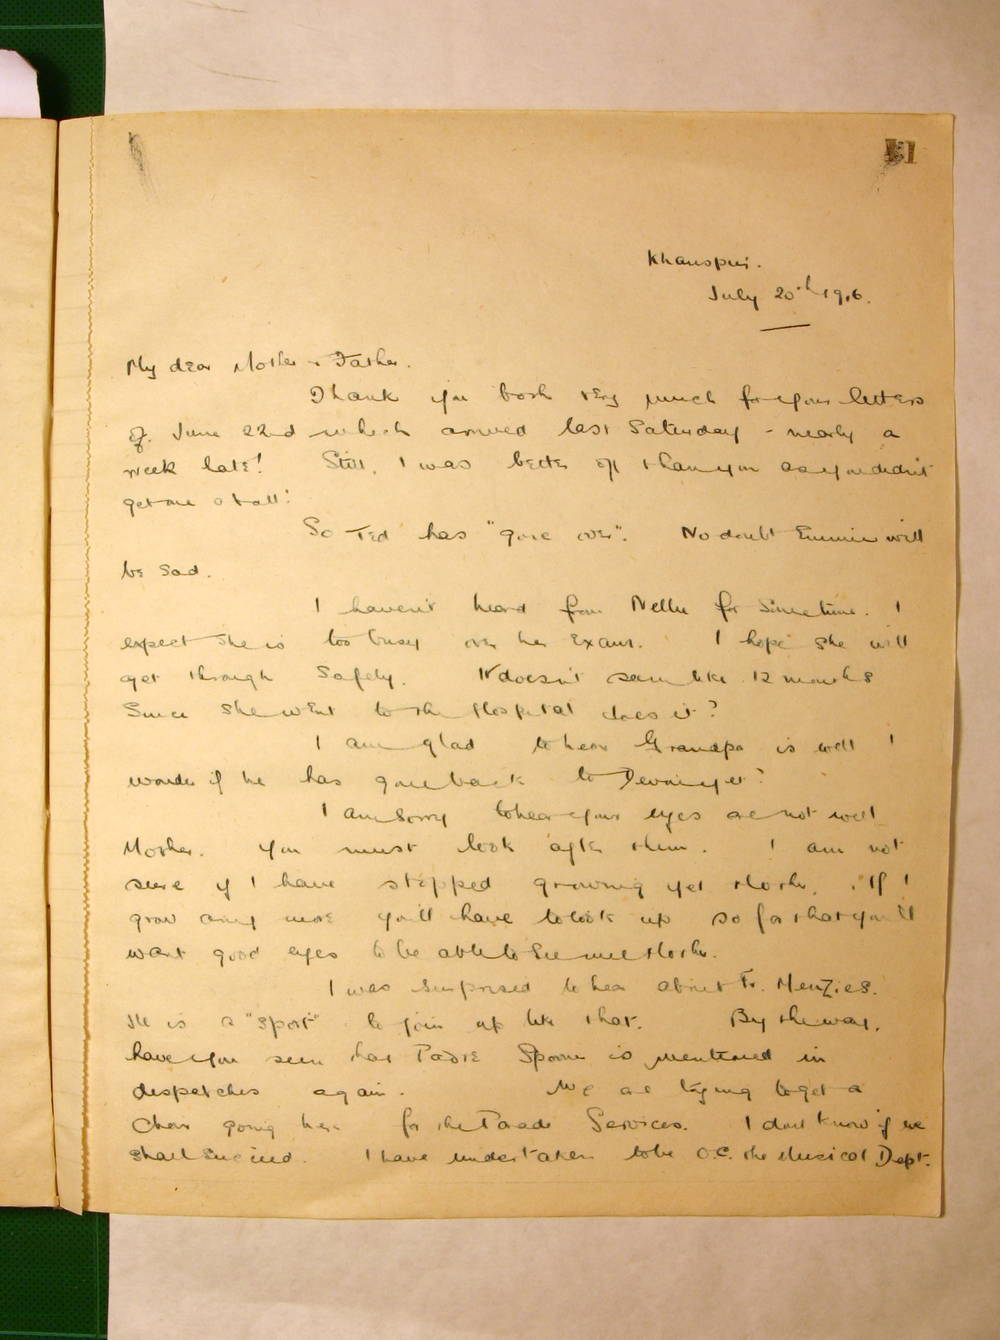 Khanspur.
July 20th 1916.
My dear Mother & Father.
Thank you both very much for your letters
of June 22nd which arrived last Saturday - nearly a
week late! Still, I was better off than you as you didn't
get one at all!
So Ted has "gone over". No doubt Emmie will
be sad.
I haven't heard from Nellie for sometime. I
expect she is too busy over her exams. I hope she will
get through safely. It doesn't seem like 12 months
since she went to the Hospital does it?
I am glad to hear Grandpa is well I
wonder if he has gone back to Devon yet?
I am sorry to hear your eyes are not well
Mother. You must look after them. I am not
sure if I have stopped growing yet Mother, If I
grow any more you'll have to look up so far that you'll
want good eyes to be able to see me Mother.
I was surprised to hear about Fr. Menzies.
He is a "sport" to join up like that. By the way,
have you seen that Padre Spooner is mentioned in
despatches again. We are trying to get a
Choir going here for the Parade Services. I don't know if we
shall succeed. I have undertaken to be O.C. the Musical Dept.